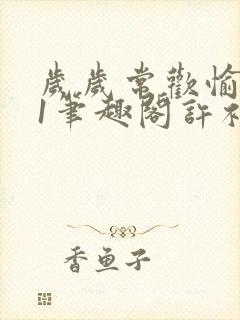 歲歲常歡愉
1筆趣閣許
香魚子